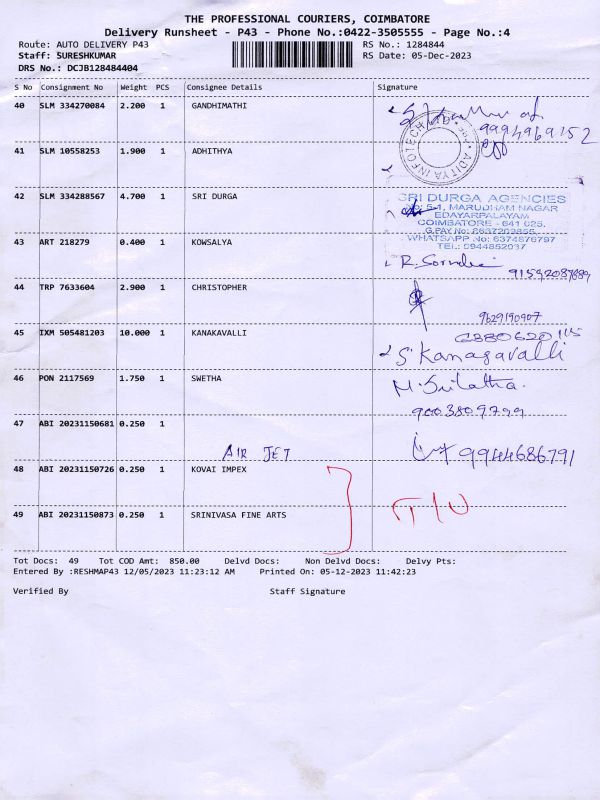 THE PROFESSIONAL COURIERS, COIMBATORE
Delivery Runsheet - P43 - Phone No.:0422-3505555 - Page No.:4
Route: AUTO DELIVERY P43 RS No.: 1284844
Staff: SURESHKUMAR RS Date: 05-Dec-2023
DRS No.: DCJB128484404
S No Consignment No Weight PCS Consignee Details Signature
40 SLM 334270084 2.200 1 GANDHIMATHI
9994969152
ADITYA INFOTECH
41 SLM 10558253 1.900 1 ADHITHYA
42 SLM 334288567 4.700 1 SRI DURGA
SRI DURGA AGENCIES
No: 5-1, MARUDHAM NAGAR
EDAYARPALAYAM
COIMBATORE - 641 025.
G.PAY No:
WHATSAPP No: 6374876797
TEL: 0944852037
43 ART 218279 0.400 1 KOWSALYA
44 TRP 7633604 2.900 1 CHRISTOPHER
9629190907
45 IXM 505481203 10.000 1 KANAKAVALLI
S. Kanagavalli
46 PON 2117569 1.750 1 SWETHA
M. Srilatha.
9003809799
47 ABI 20231150681 0.250 1
AIR JET 9944686791
48 ABI 20231150726 0.250 1 KOVAI IMPEX
49 ABI 20231150873 0.250 1 SRINIVASA FINE ARTS
Tot Docs: 49 Tot COD Amt: 850.00 Delvd Docs: Non Delvd Docs: Delvy Pts:
Entered By :RESHMAP43 12/05/2023 11:23:12 AM Printed On: 05-12-2023 11:42:23
Verified By Staff Signature